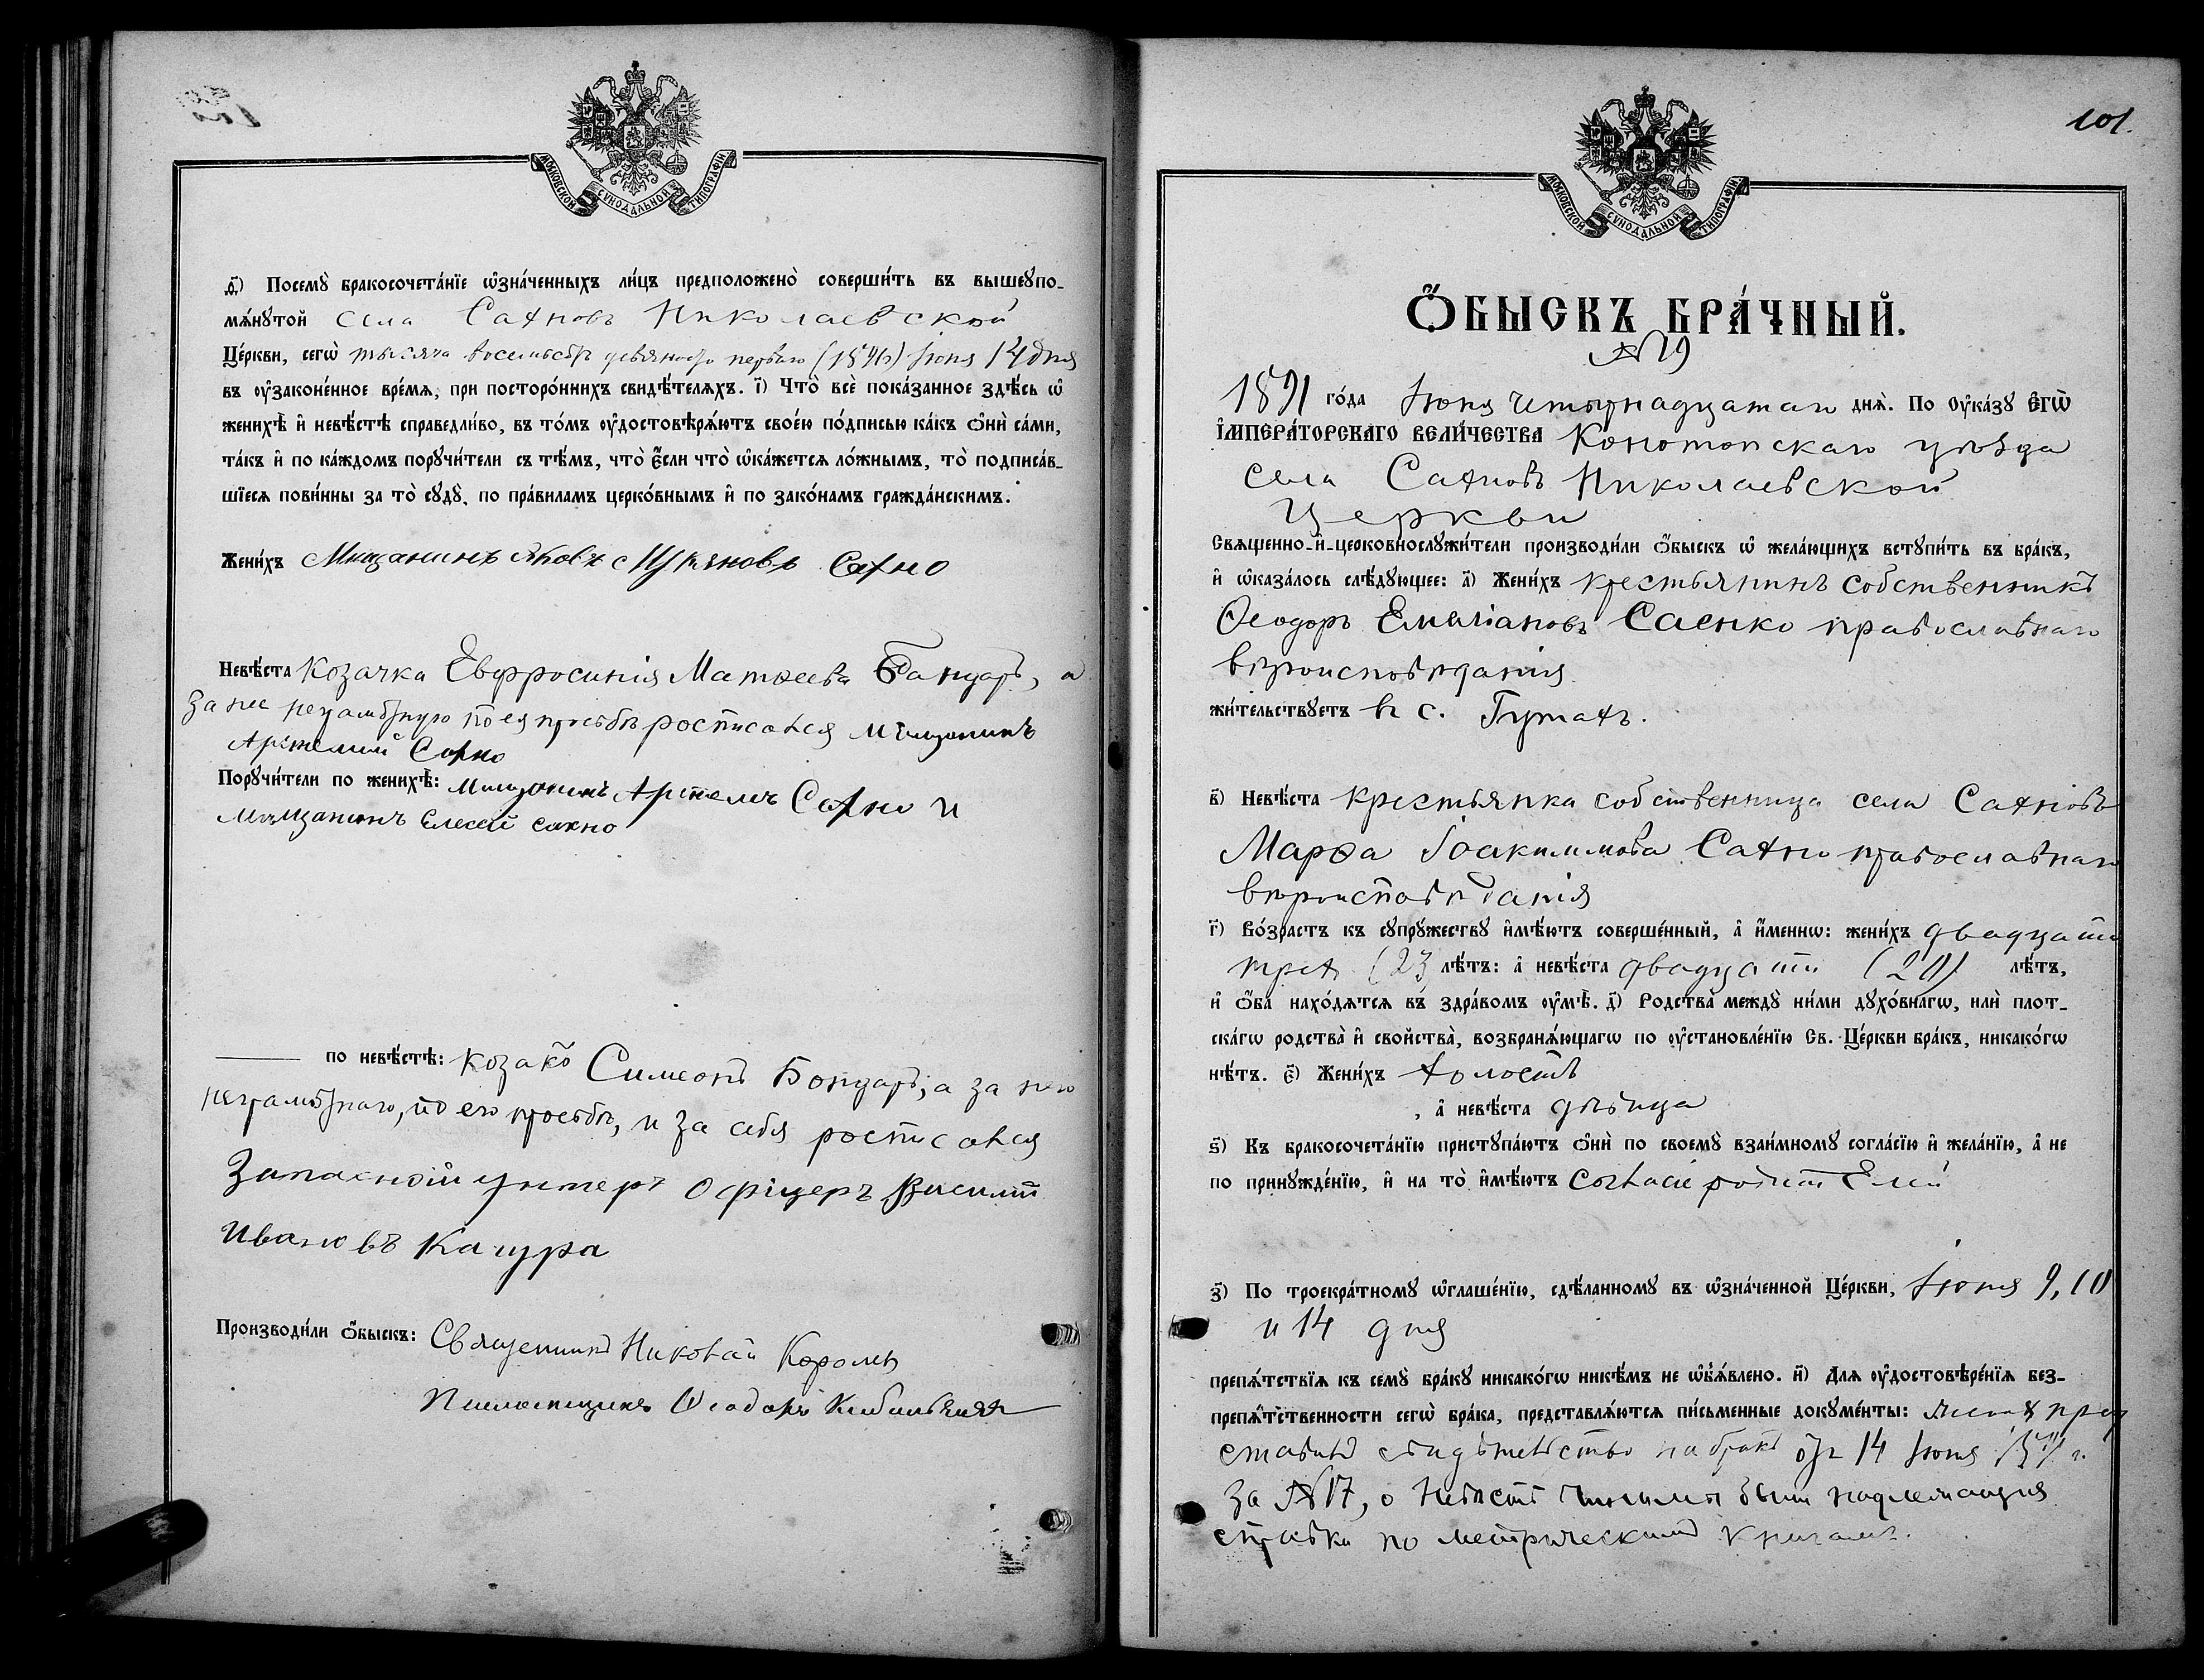 МОСКОВСКОЙ СѴНОДАЛЬНОЙ ТИПОГРАФІИ
ѳ҃) Посемꙋ̀ бракосочета́нїе ѡ҆зна́ченныхъ ли́цъ предположено̀ соверши́ть въ вышеꙋпо-
мѧ́нꙋтой села Сахновъ Николаевской
Це́ркви, сегѡ̀ тысяча восемьсотъ девяносто перваго (1891) Іюня 14 дня
въ ᲂу҆законе́нное вре́мѧ, при посторо́ннихъ свидѣ́телѧхъ. і҃) Что̀ всѐ пока́занное здѣ́сь ѡ҆
женихѣ̀ и҆ невѣ́стѣ справедли́во, въ то́мъ ᲂу҆достовѣрѧ́ютъ свое́ю по́дписью ка́къ ѻ҆нѝ са́ми,
та́къ и҆ по ка́ждомъ порꙋчи́тели съ тѣ́мъ, что̀ є҆́сли что̀ ѡ҆ка́жетсѧ ло́жнымъ, то̀ подписа́в-
шїесѧ пови́нны за то̀ сꙋдꙋ̀, по пра́виламъ церко́внымъ и҆ по зако́намъ гражда́нскимъ.
Жени́хъ Мищанинъ Яковъ Сахно
Невѣ́ста козачка Евфросинія Матѳеева Бандарь, а
за нее неграмотную по ея просьбѣ росписался мѣщанинъ
Артемий Сахно
Порꙋчи́тели по женихѣ̀: Мищанинъ Артемъ Сахно и
мѣщанинъ Елесей Сахно
по невѣ́стѣ: козакъ Симеонъ Бондарь, а за него
неграмотнаго, по его просьбѣ, и за себя росписался
Запасной унтеръ Офіцеръ Василій
Ивановъ Качура
Производи́ли ѻ҆́быскъ: Священникъ Николай Король
Псаломщикъ Ѳеодоръ
101.
МОСКОВСКОЙ СѴНОДАЛЬНОЙ ТИПОГРАФІИ
Ѻ҆́БЫСКЪ БРА́ЧНЫЙ.
№ 19
1891 го́да Іюня четырнадцатаго днѧ̀. По ᲂу҆ка́зꙋ Є҆гѡ̀
І҆мпера́торскаго Вели́чества Конотопскаго уѣзда
села Сахновъ Николаевской
Церкви
Свѧщенно-и҆-церковнослꙋжи́тели производи́ли ѻ҆́быскъ ѡ҆ жела́ющихъ встꙋпи́ть въ бра́къ,
и҆ ѡ҆каза́лось слѣ́дꙋющее: а҃) Жени́хъ крестьянинъ собственникъ
Ѳеодоръ Емиліановъ Саенко православнаго
вѣроисповѣданія
жи́тельствꙋетъ въ с. Гутахъ.
в҃) Невѣ́ста крестьянка собственница села Сахновъ
Марѳа Іоакимова Сахно православнаго
вѣроисповѣданія
г҃) Во́зрастъ къ сꙋпрꙋ́жествꙋ и҆мѣ́ютъ соверше́нный, а҆ и҆́меннѡ: жени́хъ двадцати
трех (23 лѣ́тъ: а҆ невѣ́ста двадцати (20) лѣ́тъ,
и҆ ѻ҆́ба нахо́дѧтсѧ въ здра́вомъ ᲂу҆мѣ̀. д҃) Родства̀ междꙋ̀ ни́ми дꙋхо́внагѡ, илѝ плот-
ска́гѡ родства̀ и҆ свойства̀, возбранѧ́ющагѡ по ᲂу҆становле́нїю Св. Це́ркви бра́къ, никако́гѡ
нѣ́тъ. є҃) Жени́хъ холостъ
, а҆ невѣ́ста дѣвица
ѕ҃) Къ бракосочета́нїю пристꙋпа́ютъ ѻ҆нѝ по своемꙋ̀ взаи́мномꙋ согла́сїю и҆ жела́нїю, а҆ не
по принꙋжде́нїю, и҆ на то̀ и҆мѣ́ютъ согласіе родителей
з҃) По троекра́тномꙋ ѡ҆глаше́нїю, сдѣ́ланномꙋ въ ѡ҆зна́ченной Це́ркви, Іюня 9, 10
и 14 дня
препѧ́тствїѧ къ семꙋ̀ бра́кꙋ никако́гѡ никѣ́мъ не ѡ҆б̾ѧ́влено. и҃) Длѧ ᲂу҆достовѣре́нїѧ без-
препѧ́тственности сегѡ̀ бра́ка, представлѧ́ютсѧ пи́сьменные докꙋме́нты: пред
ставилъ свидѣтельство на бракъ отъ 14 Іюня 1891 г.
за № 17, о невѣстѣ чинимы были надлежащія
справки по метрическимъ книгамъ.